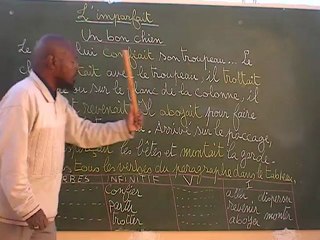 L'imparfait
Un bon chien
Le lui confiait son troupeau... Le
ch tait avec le troupeau, il trottait
ou sur le flanc de la colonne, il
et revenait il aboyait pour faire
Arrivé sur le pacage,
les bêtes et montait la garde.
tous les verbes du paragraphe dans le tableau.
BES INFINITIF V I
... confier ... aller, disperser
... partir ... revenir monter
... trotter ... aboyer